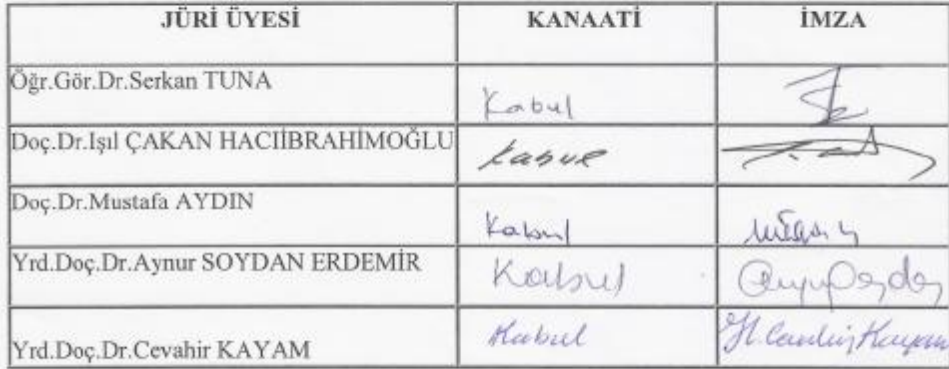 JÜRİ ÜYESİ KANAATİ İMZA
Öğr.Gör.Dr.Serkan TUNA Kabul
Doç.Dr.Işıl ÇAKAN HACIİBRAHİMOĞLU Kabul
Doç.Dr.Mustafa AYDIN Kabul
Yrd.Doç.Dr.Aynur SOYDAN ERDEMİR Kabul
Yrd.Doç.Dr.Cevahir KAYAM Kabul